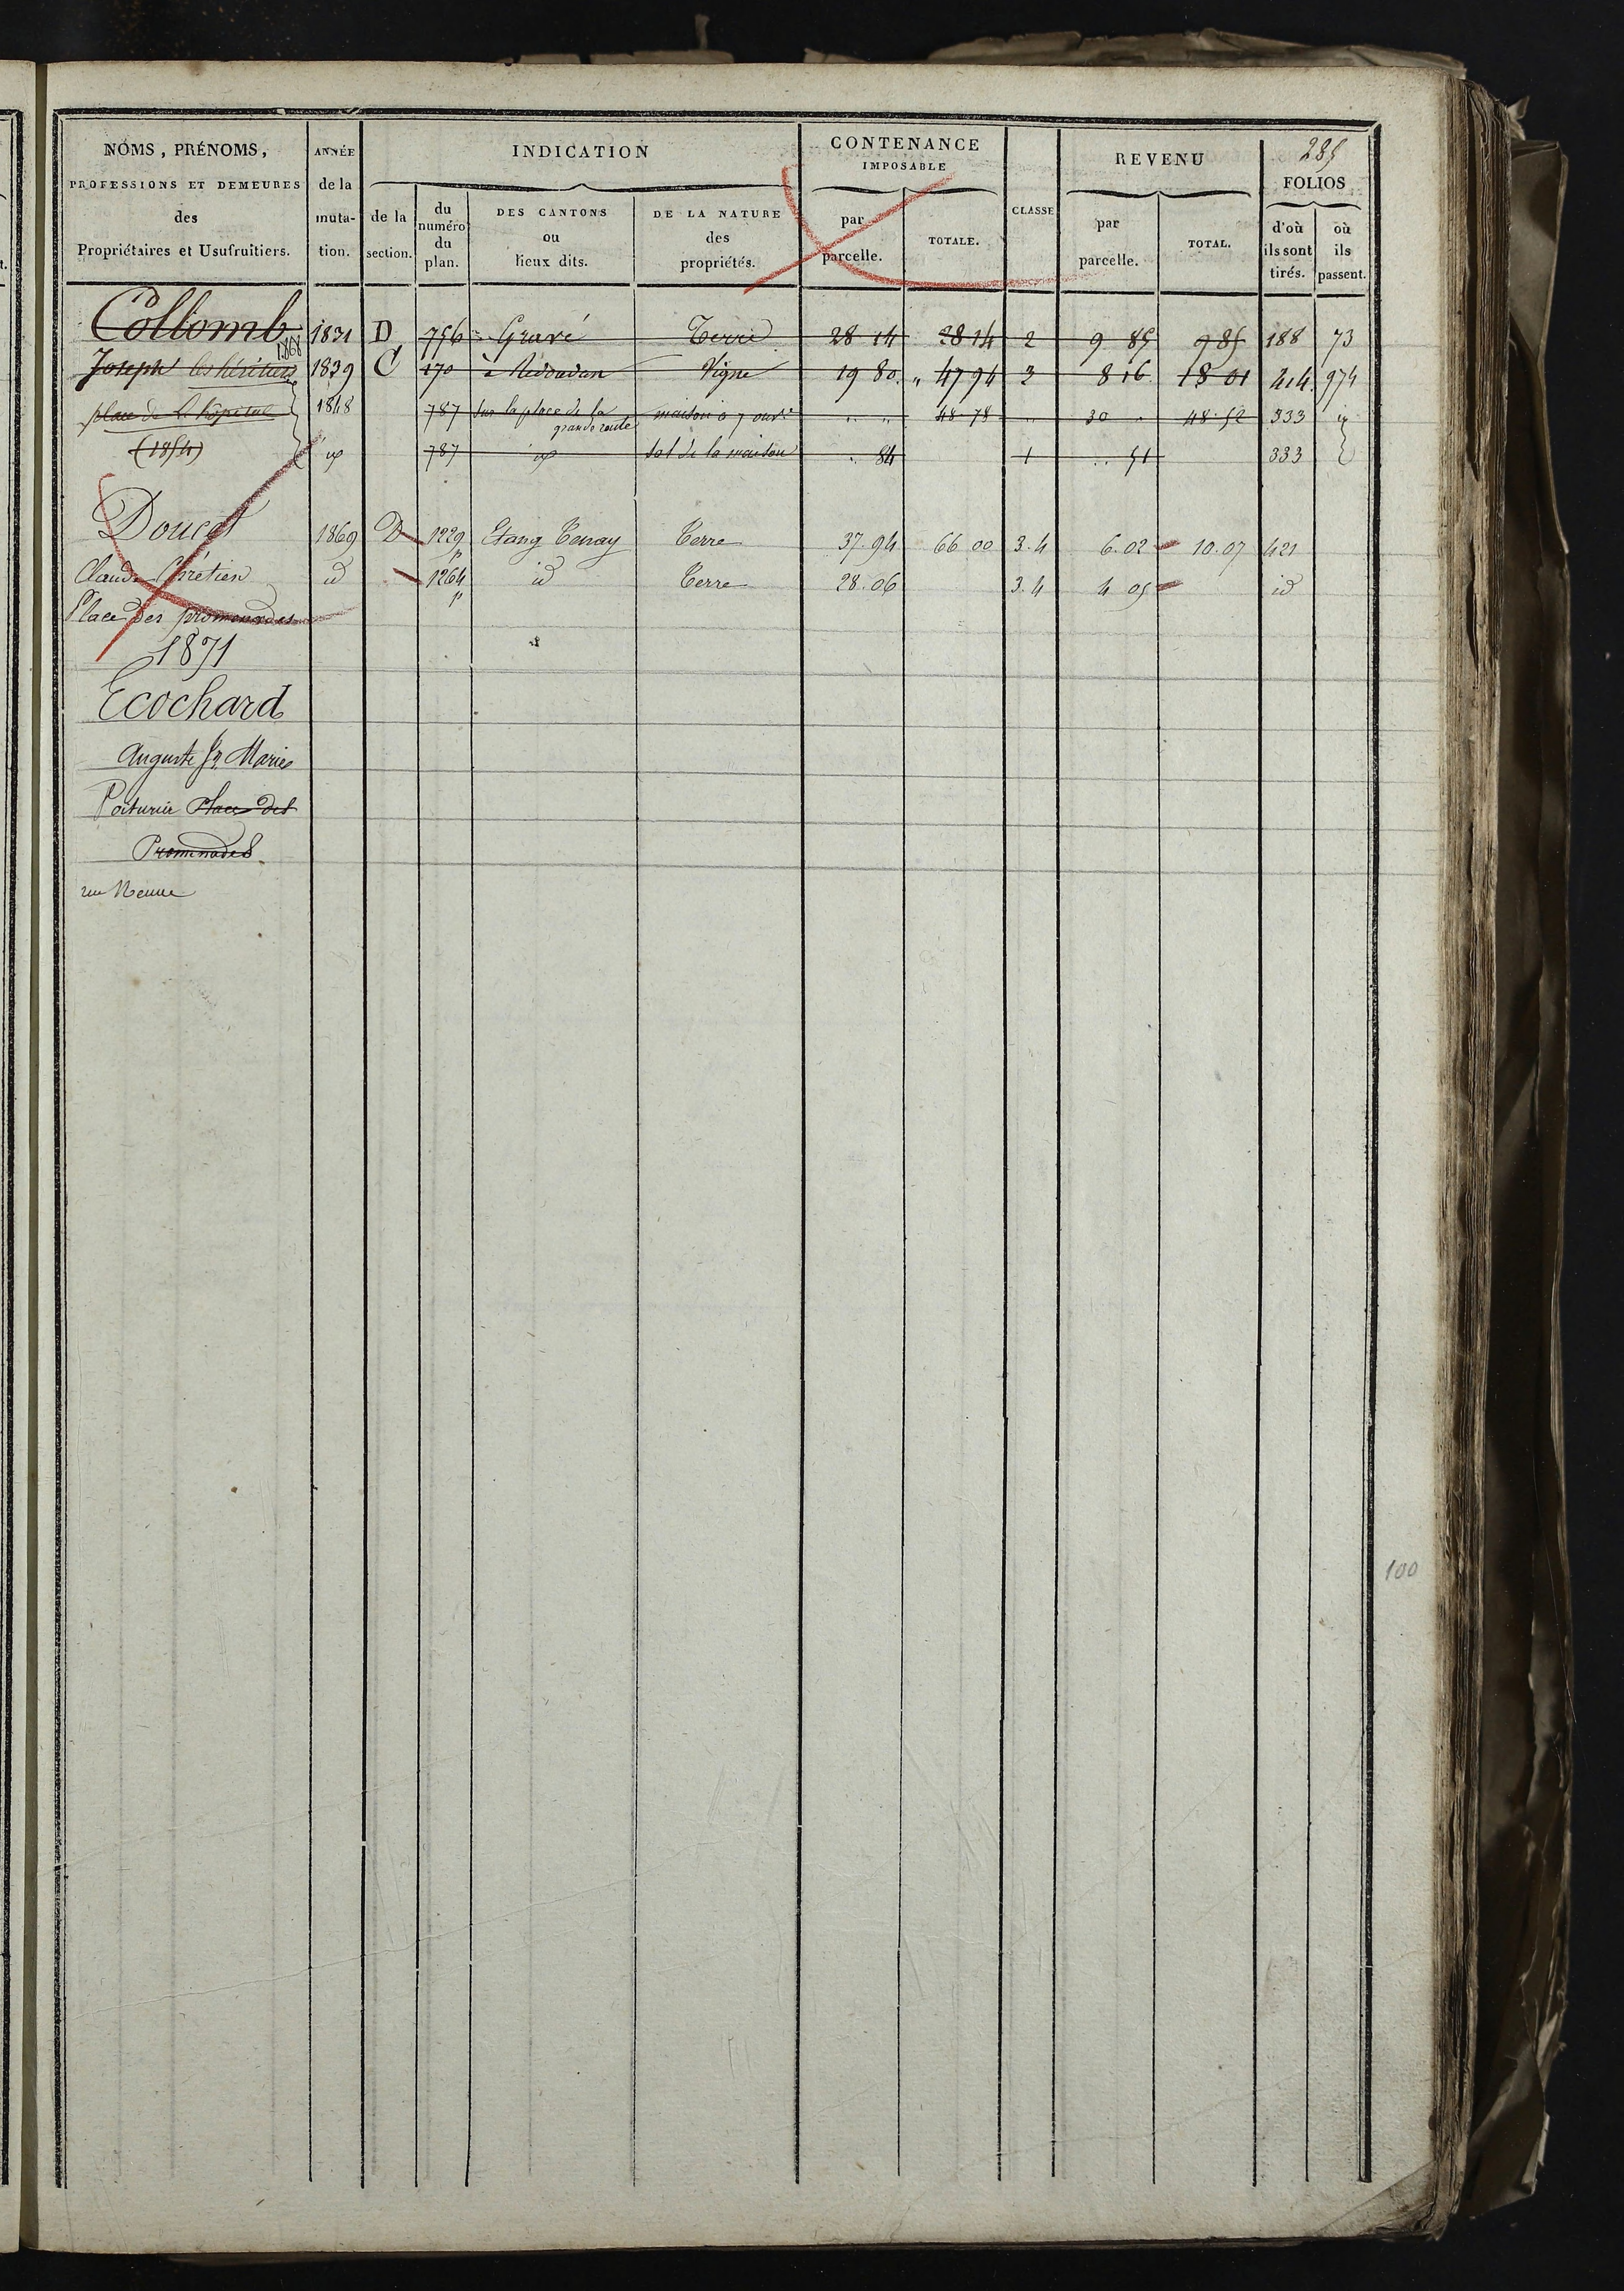 285
NOMS, PRÉNOMS, PROFESSIONS ET DEMEURES des Propriétaires et Usufruitiers.
ANNÉE de la muta-tion.
INDICATION
de la section.
du numéro du plan.
DES CANTONS ou lieux dits.
DE LA NATURE des propriétés.
CONTENANCE IMPOSABLE
par parcelle.
TOTALE.
CLASSE
REVENU
par parcelle.
TOTAL.
FOLIOS
d'où ils sont tirés.
où ils passent.
Collomb 1831 D 756 Gravé Terre 28 14 28 14 2 9 85 9 85 188 73
1868
Joseph les héritiers 1839 C 170 à 19 80 47 94 3 8 16 18 01 414 974
Vigne
place de L'hôpital 1848 787 Sur la place de la grande route maison à 7 ouv.s 48 78 30 48 52 333
(1854) 787 Sol de la maison 84 1 51 333
Doucet 1869 D 1229 p Etang Tenay Terre 37.94 66 00 3.4 6.02 10.07 421
Claude Chrétien id 1264 p id Terre 28.06 3.4 4 05 id
Place des promenades
1871
Ecochard
Auguste Marie
Place des
Promenades
rue Neuve
100